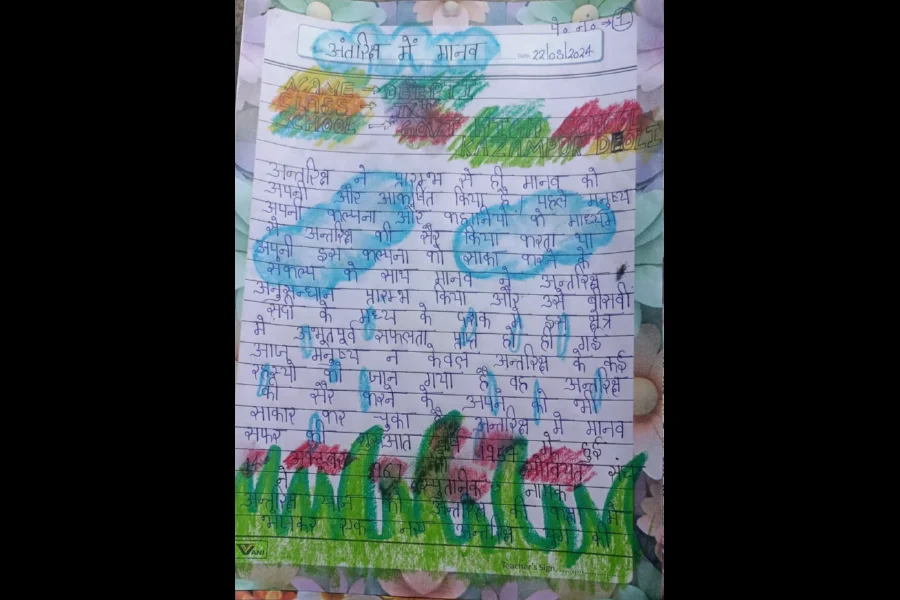 पे० नं० → 1
अंतरिक्ष में मानव
Date 22/08/2024
NAME →
CLASS →
SCHOOL → GOVT HIGH SCHOOL
KAZAMPUR DEOLI
अन्तरिक्ष ने प्रारम्भ से ही मानव को
अपनी और आकर्षित किया है। पहले मनुष्य
अपनी कल्पना और कहानियों के माध्यम
से अन्तरिक्ष की सैर किया करता था
अपनी इस कल्पना को साका करने के
संकल्प के साथ मानव ने अन्तरिक्ष
अनुसन्धान प्रारम्भ किया और उसे बीसवी
सदी के मध्य के दशक मे इस क्षेत्र
मे अभूतपूर्व सफलता प्राप्त हो ही गई
आज मनुष्य न केवल अन्तरिक्ष के कई
रहस्यो को जान गया है वह अन्तरिक्ष
की सैर करने के अपने को भी
साकार कर चुका है अन्तरिक्ष मे मानव
सफर की शुरुआत सन् 1957 मे हुई
अक्टूबर सोवियत संघ
ने स्पुतनिक नामक
अन्तरिक्ष यान को अन्तरिक्ष की कक्षा में
भेजकर एक नए अन्तरिक्ष युग की
VANI
Teacher's Sign